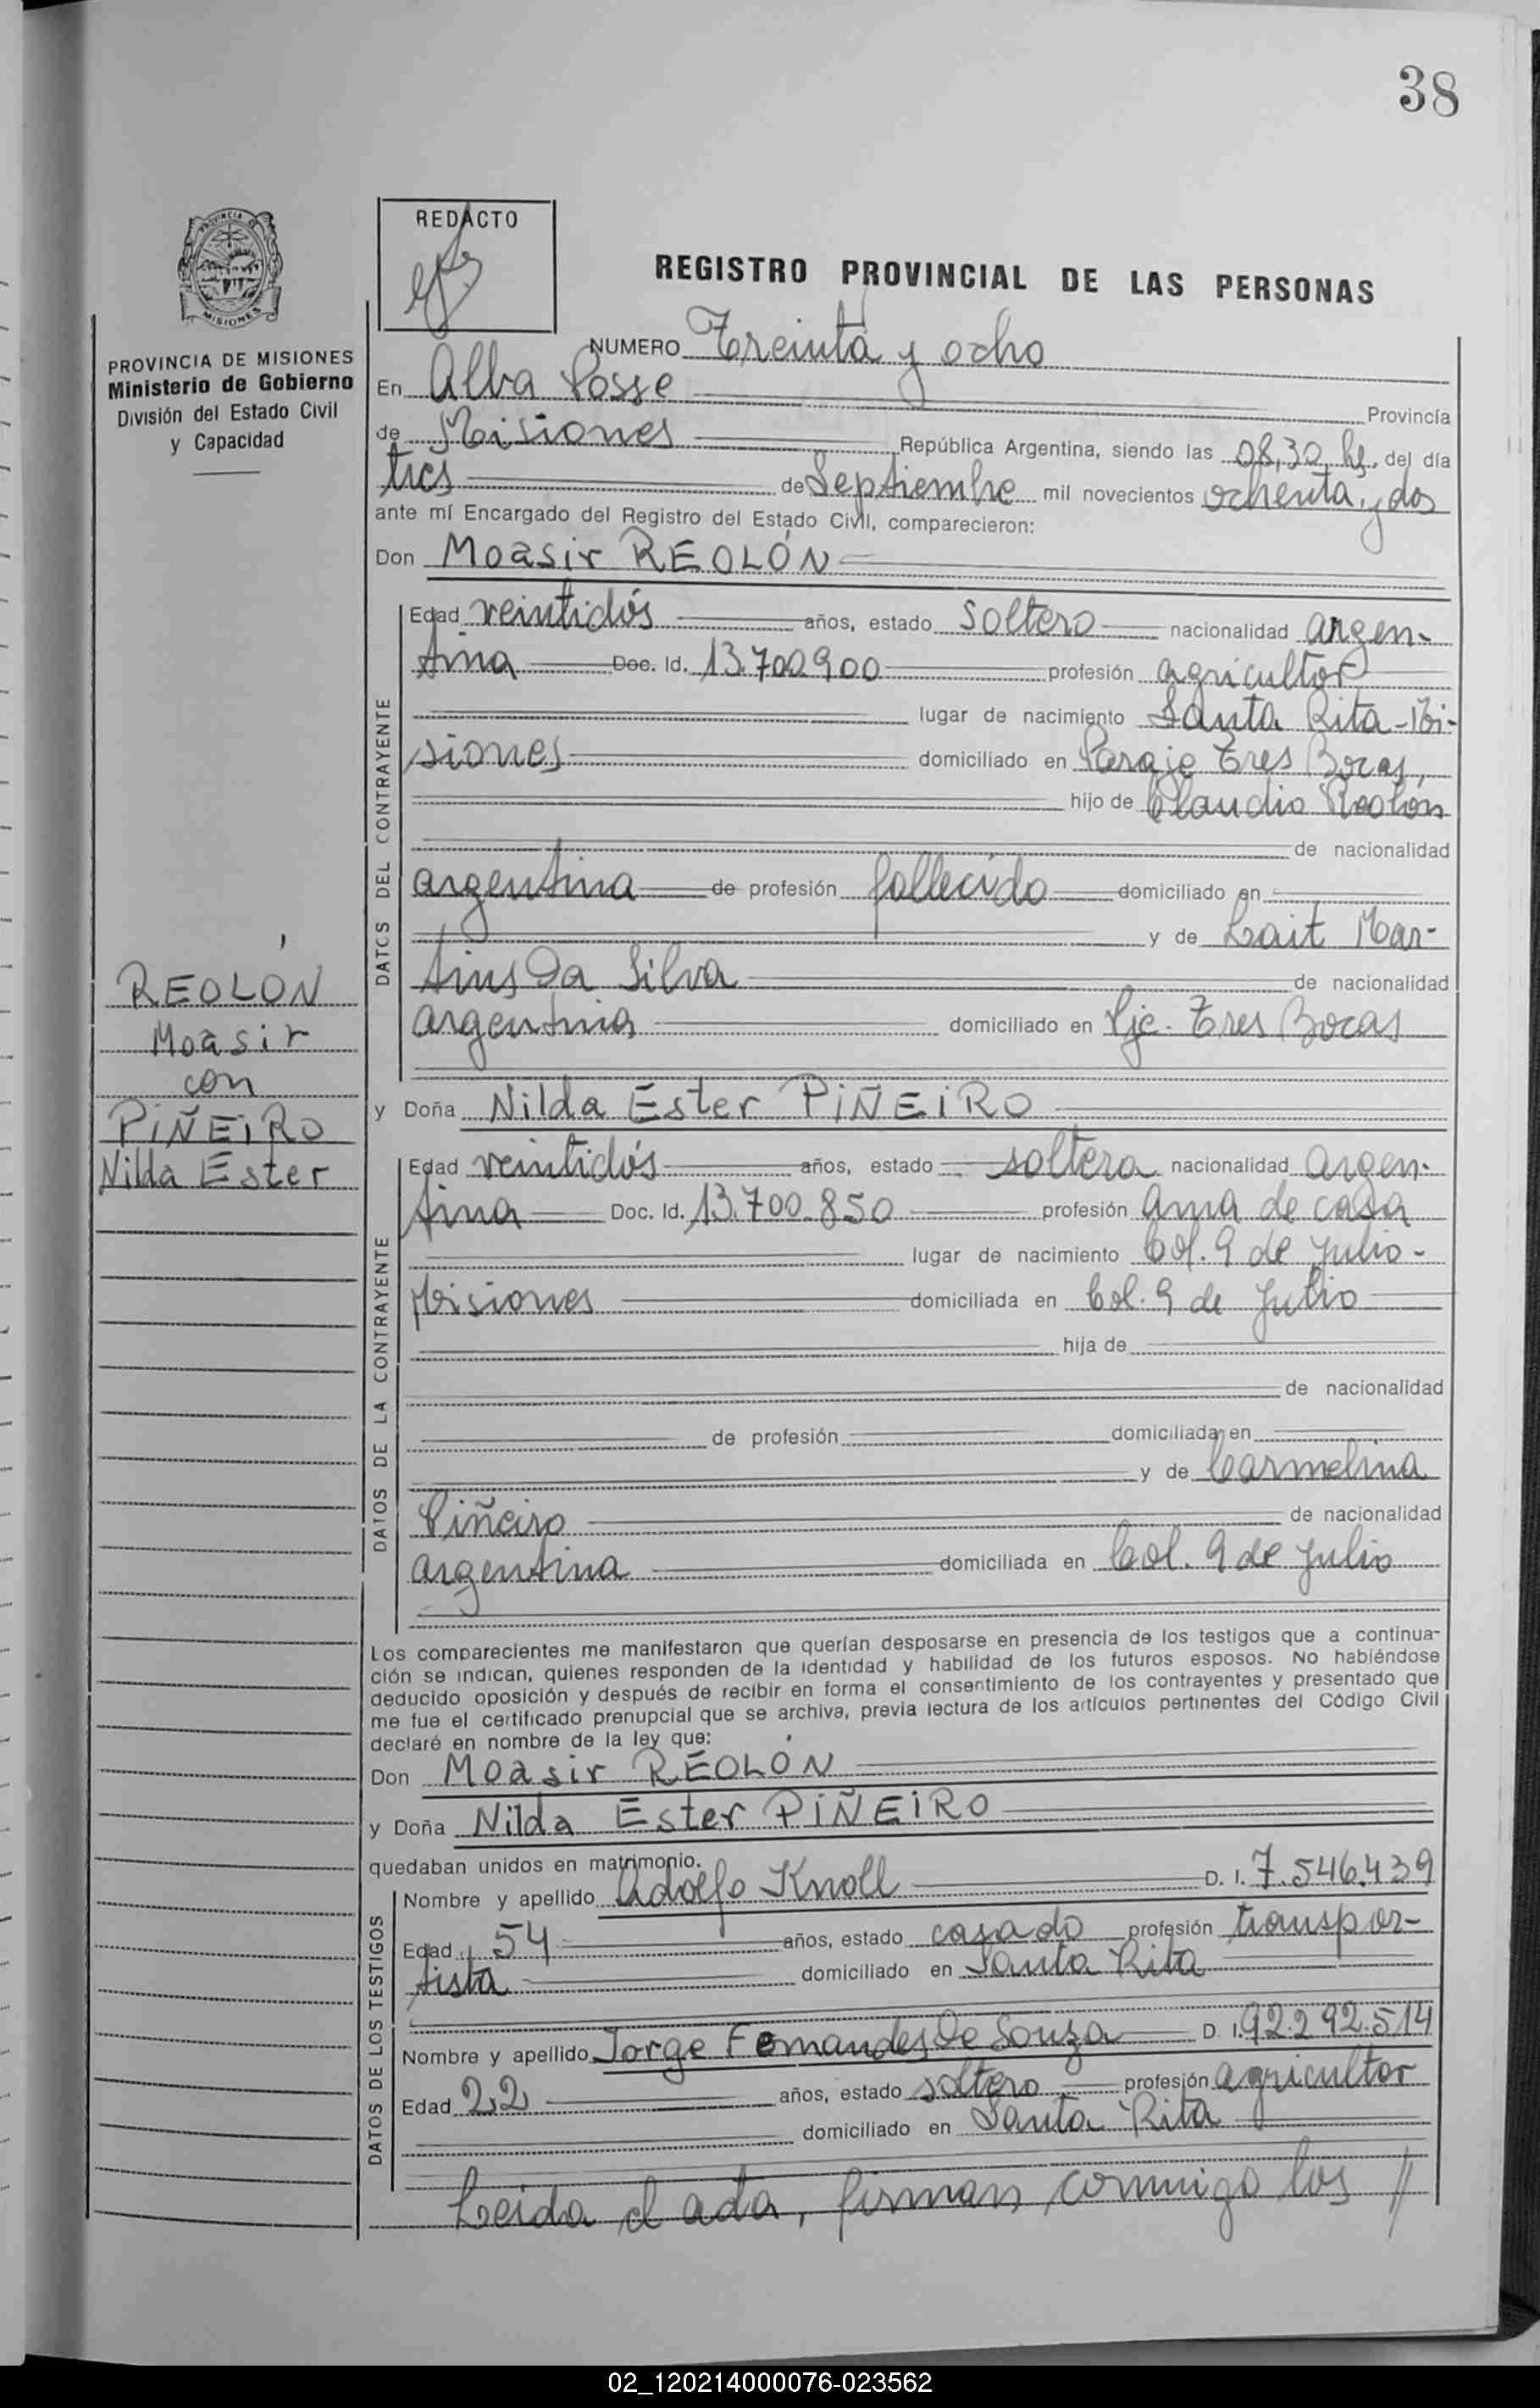 38
PROVINCIA DE MISIONES
PROVINCIA DE MISIONES
Ministerio de Gobierno
División del Estado Civil
y Capacidad
REDACTO
REGISTRO PROVINCIAL DE LAS PERSONAS
NUMERO Treinta y ocho
En Alba Posse Provincia
de Misiones República Argentina, siendo las 08,30 hs. del día
tres de Septiembre mil novecientos ochenta y dos
ante mí Encargado del Registro del Estado Civil, comparecieron:
Don Moasir REOLÓN
DATOS DEL CONTRAYENTE
Edad veintidós años, estado soltero nacionalidad argen-
tina Doc. Id. 13.700.900 profesión agricultor
lugar de nacimiento Santa Rita-Mi-
siones domiciliado en Paraje Tres Bocas,
hijo de Claudio Reolón
de nacionalidad
argentina de profesión fallecido domiciliado en
y de Lait Mar-
tins Da Silva de nacionalidad
argentina domiciliado en Pje. Tres Bocas
REOLÓN
Moasir
con
PIÑEIRO
Nilda Ester
y Doña Nilda Ester PIÑEIRO
DATOS DE LA CONTRAYENTE
Edad veintidós años, estado soltera nacionalidad argen-
tina Doc. Id. 13.700.850 profesión ama de casa
lugar de nacimiento Col. 9 de Julio-
Misiones domiciliada en Col. 9 de Julio
hija de
de nacionalidad
de profesión domiciliada en
y de Carmelina
Piñeiro de nacionalidad
argentina domiciliada en Col. 9 de Julio
Los comparecientes me manifestaron que querían desposarse en presencia de los testigos que a continua-
ción se indican, quienes responden de la identidad y habilidad de los futuros esposos. No habiéndose
deducido oposición y después de recibir en forma el consentimiento de los contrayentes y presentado que
me fue el certificado prenupcial que se archiva, previa lectura de los artículos pertinentes del Código Civil
declaré en nombre de la ley que:
Don Moasir REOLÓN
y Doña Nilda Ester PIÑEIRO
quedaban unidos en matrimonio.
DATOS DE LOS TESTIGOS
Nombre y apellido Adolfo Knoll D. I. 7.546.439
Edad 54 años, estado casado profesión transpor-
tista domiciliado en Santa Rita
Nombre y apellido Jorge Fernandes De Souza D. I. 92.292.514
Edad 22 años, estado soltero profesión agricultor
domiciliado en Santa Rita
Leida el acta, firman conmigo los //
02_120214000076-023562